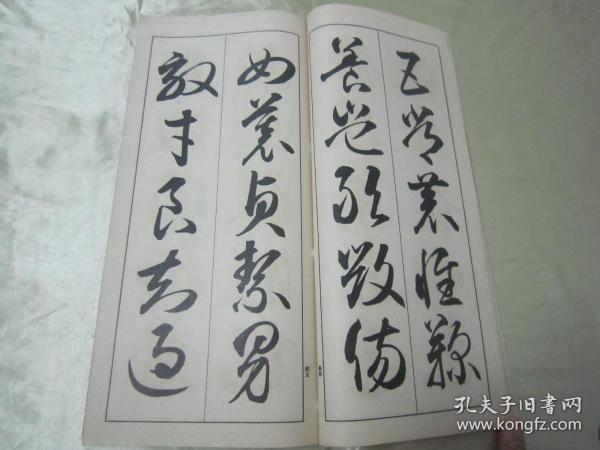 五常恭惟鞠
養豈敢毀傷
女慕貞絜男
效才良知過
孔夫子旧書网
www.kongfz.com